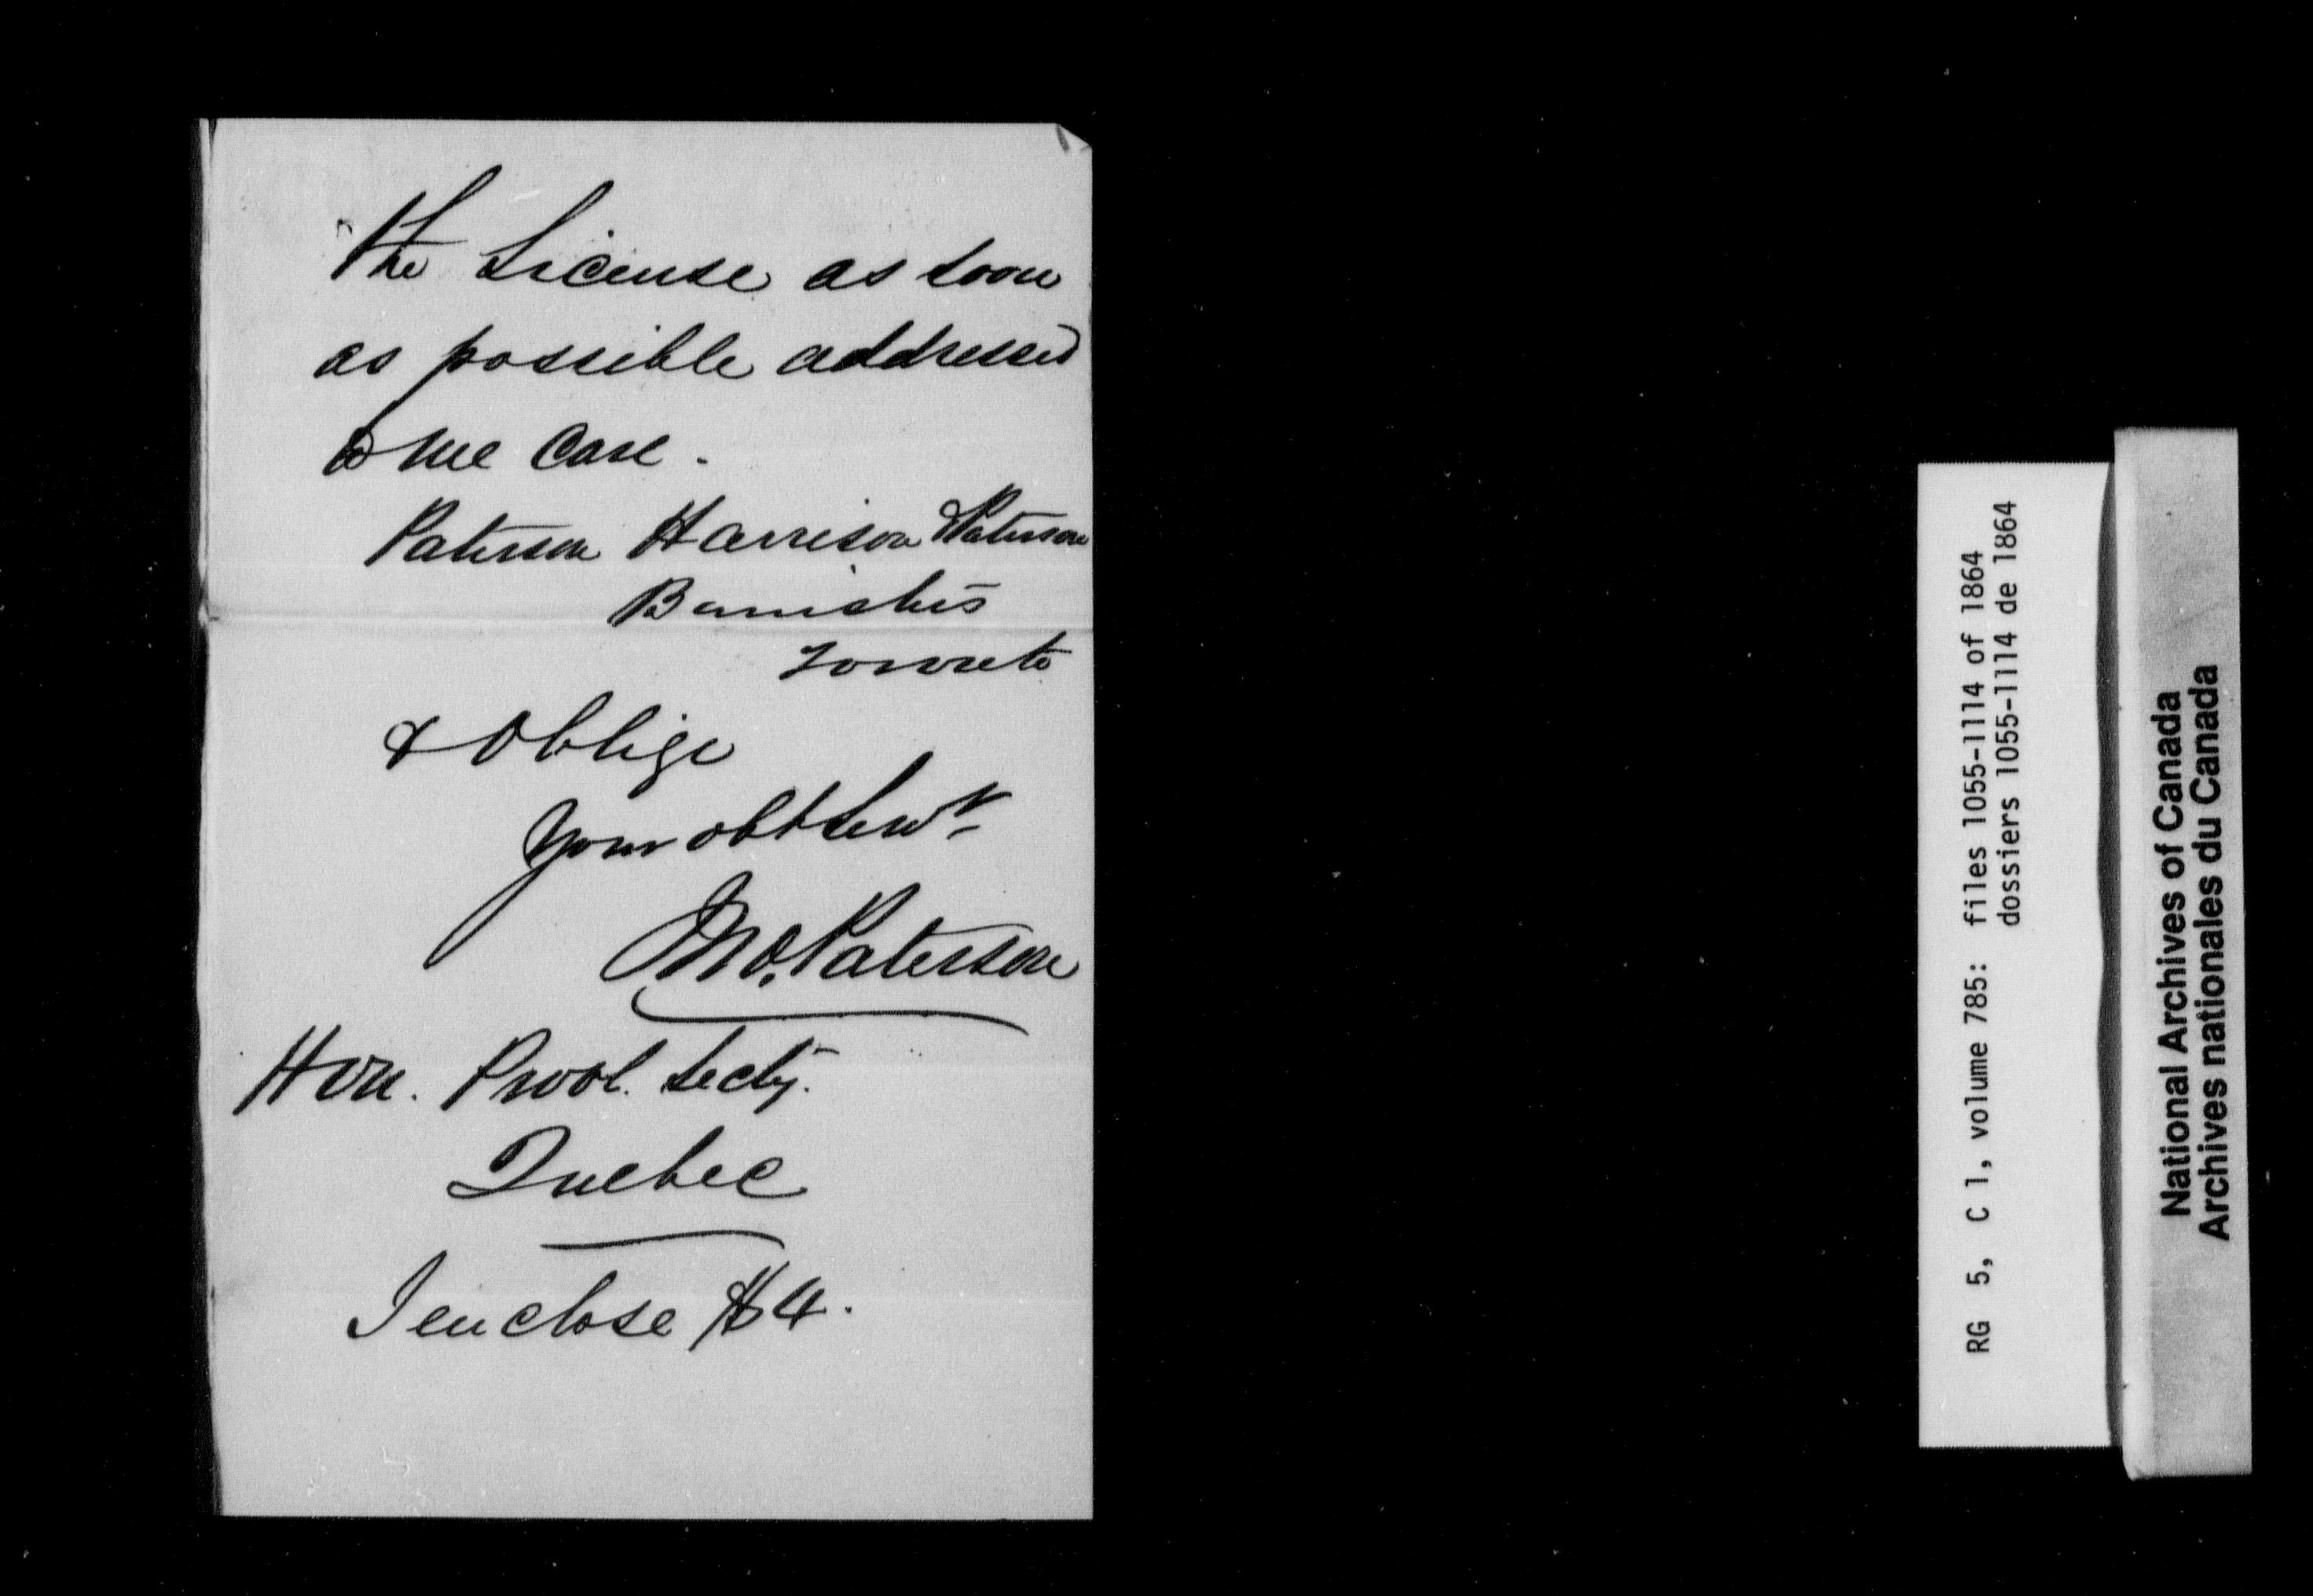 the License as soon
as possible addressed
to me care.
Paterson Harrison & Paterson
Barristers
Toronto
& Oblige
Your obt Servt
Jno. Paterson
Hon. Provl. Secty.
Quebec
I enclose $4.
RG 5, C 1, volume 785: files 1055-1114 of 1864
dossiers 1055-1114 de 1864
National Archives of Canada
Archives nationales du Canada